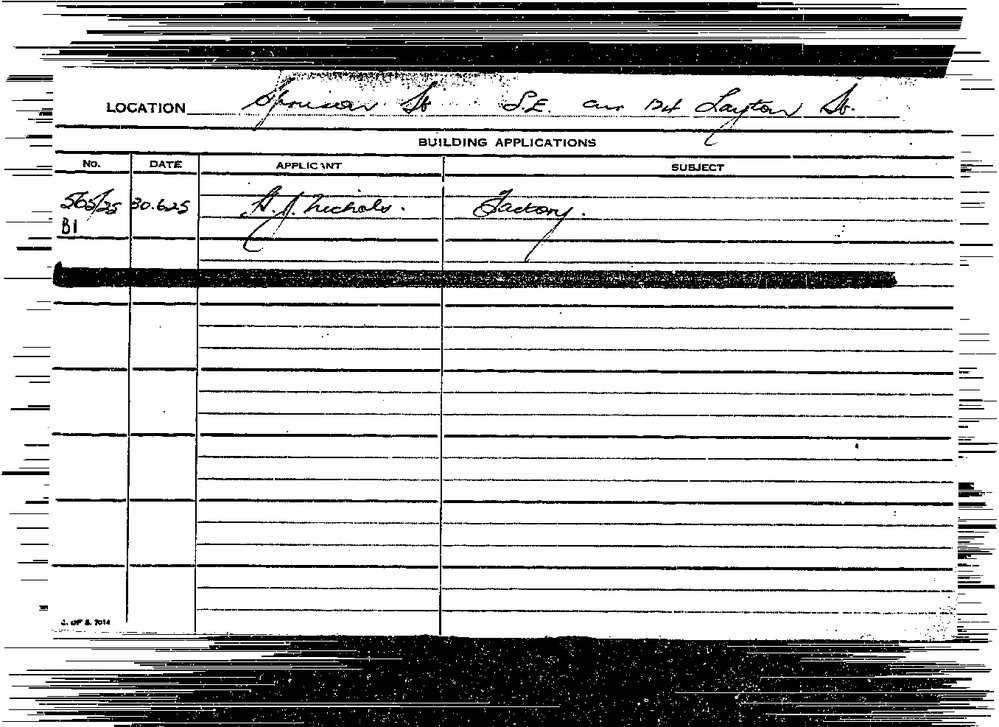 LOCATION Spencer St S.E. cnr Layton St.
BUILDING APPLICATIONS
No. DATE APPLICANT SUBJECT
565/25 30.6.25 J. Nichols. Factory.
B1